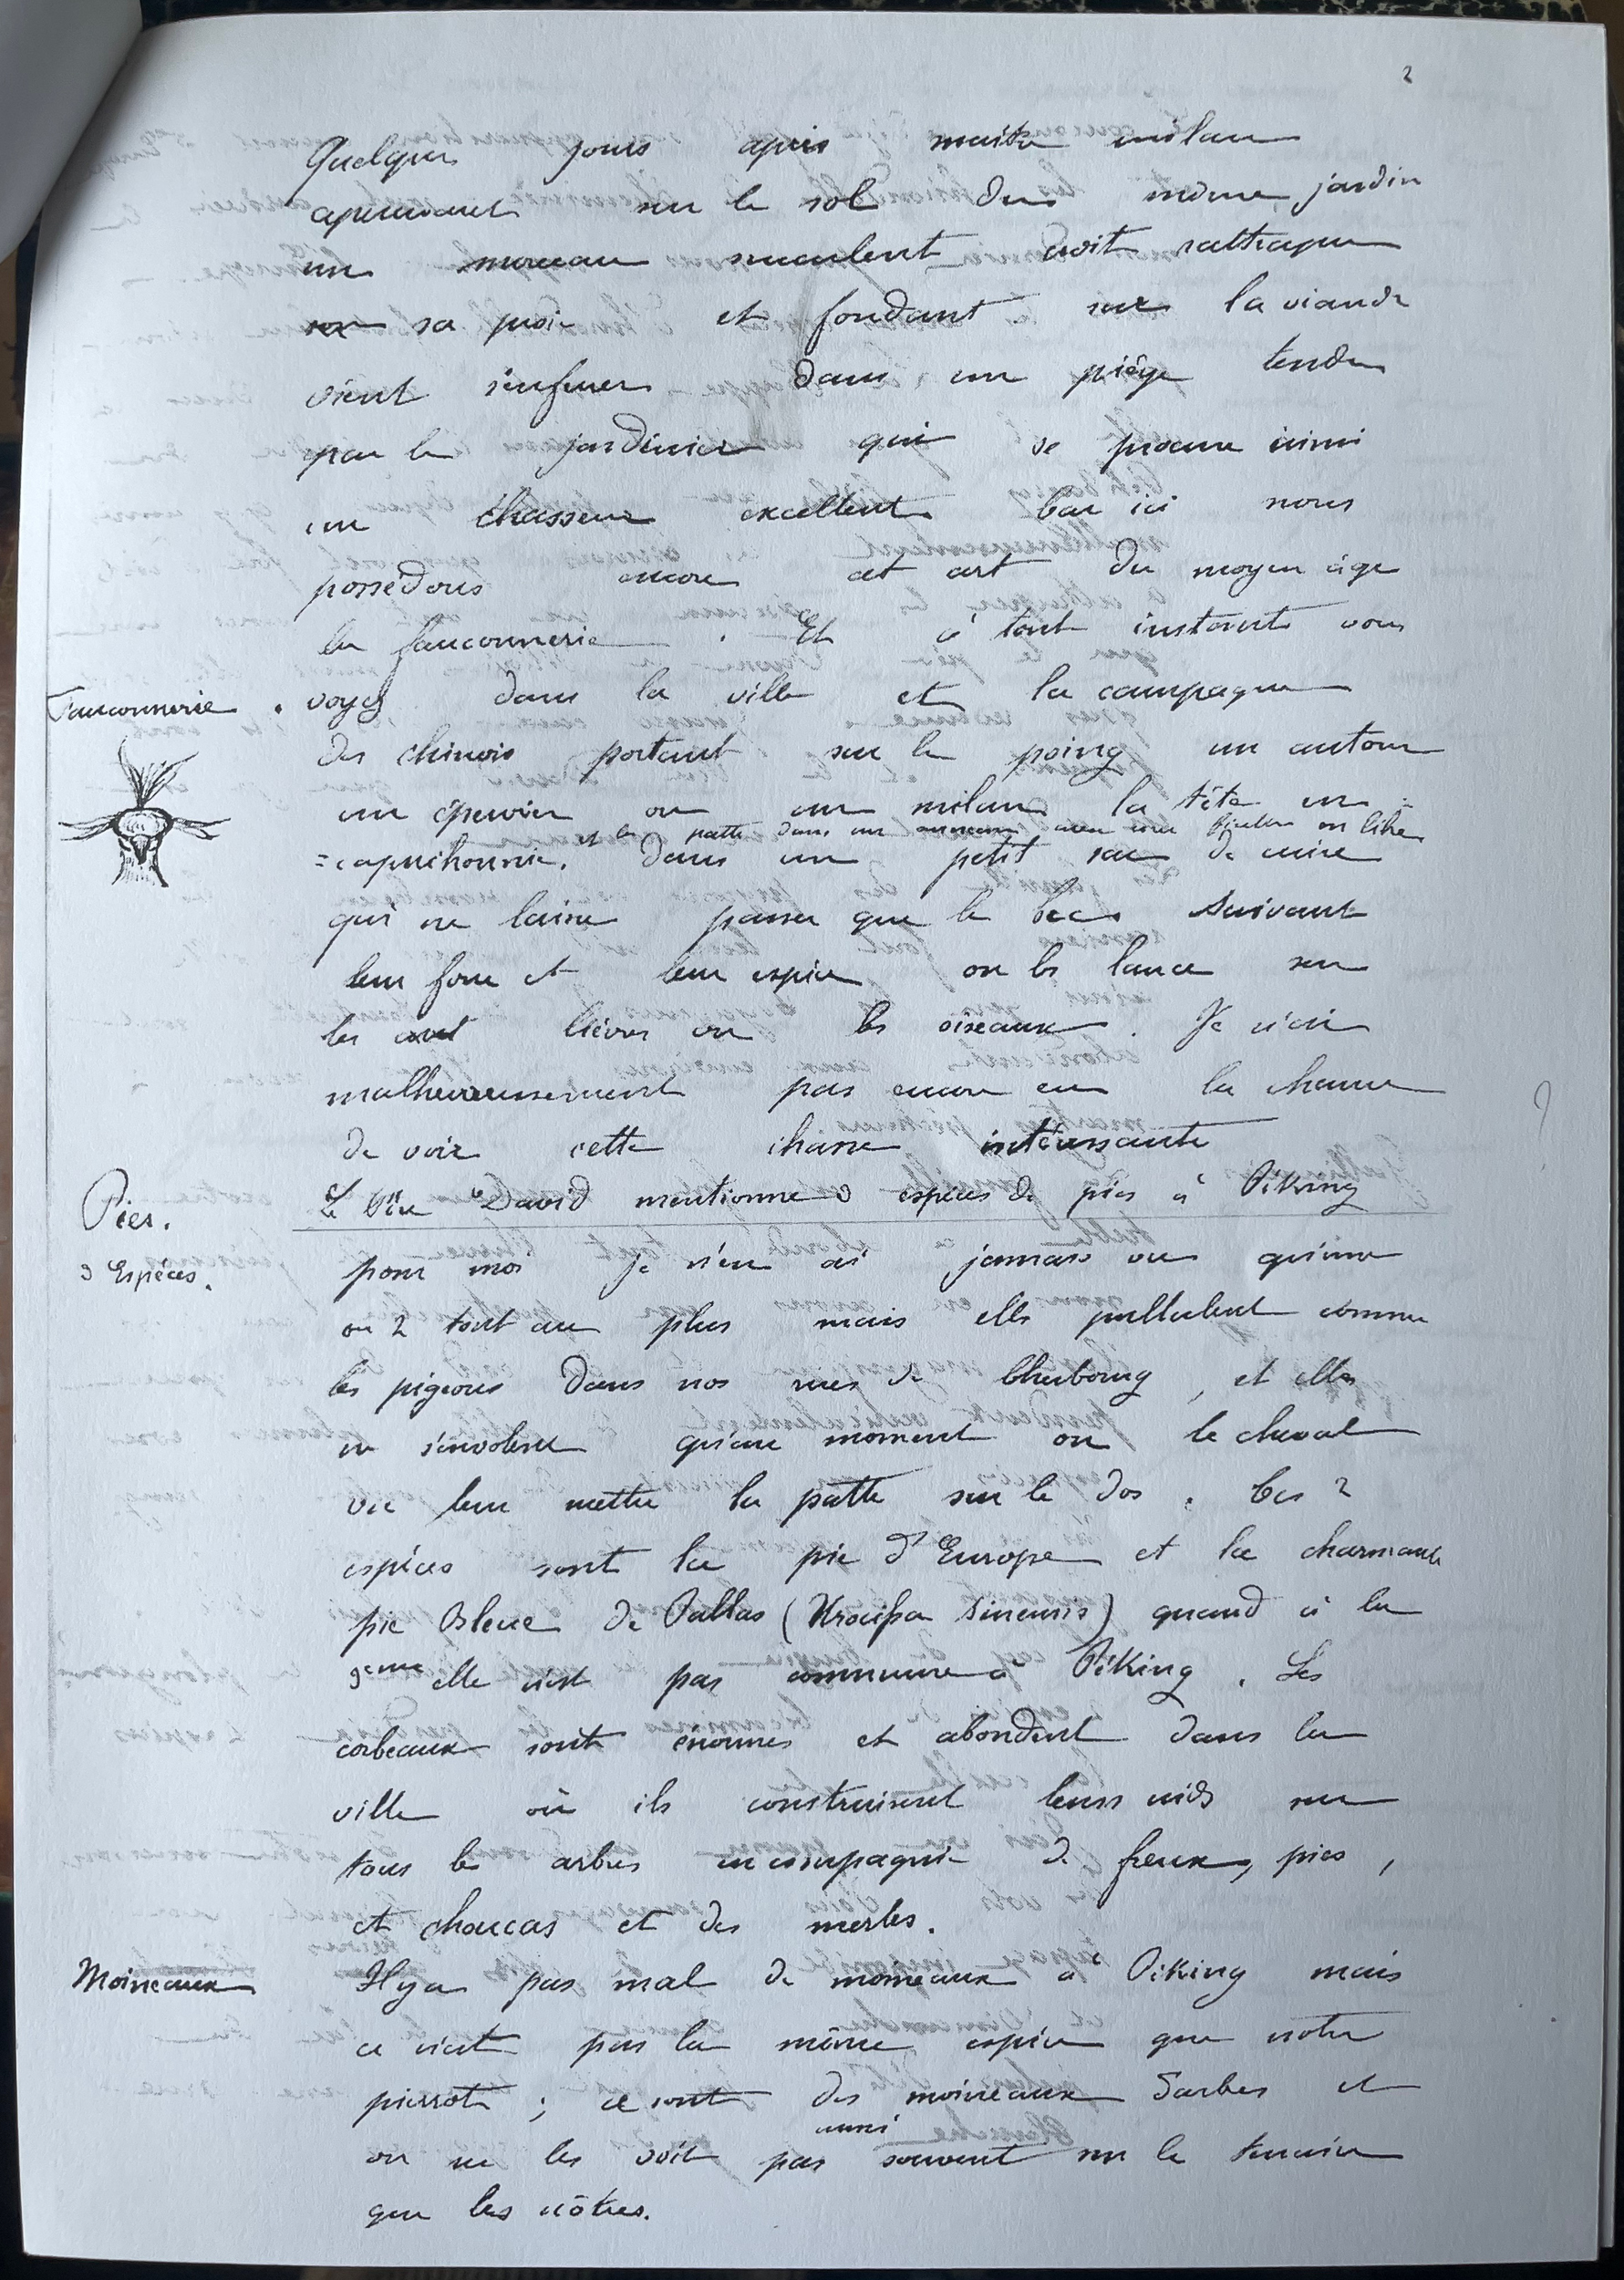 2
Quelques jours après maître milan
apercevant sur le sol du même jardin
un morceau succulent croit rattraper
sa proie et fondant sur la viande
vient s'enferrer dans un piège tendu
par le jardinier qui se procure ainsi
un chasseur excellent. Car ici nous
possédons encore cet art du moyen âge
la fauconnerie. Et à tout instant vous
Fauconnerie.
voyez dans la ville et la campagne
des chinois portant sur le poing un autour
un épervier ou un milan la tête en=
et la patte dans un anneau avec une
=capuchonnée. dans un petit sac de cuire
qui ne laisse passer que le bec. Suivant
leur force et leur espèce on les lance sur
les lièvres ou les oiseaux. Je n'ai
malheureusement pas encore eu la chance
de voir cette chasse intéressante
Pies.
3 Espèces.
Le Père David mentionne 3 espèces de pies à Péking
pour moi je n'en ai jamais vu qu'une
ou 2 tout au plus mais elles pullulent comme
les pigeons dans nos rues de Cherbourg, et elles
ne s'envolent qu'au moment ou le cheval
va leur mettre la patte sur le dos. Ces 2
espèces sont la pie d'Europe et la charmante
pie Bleue de Pallas (Urocissa Sinensis) quand à la
3eme elle n'est pas commune à Péking. Les
corbeaux sont énormes et abondent dans la
ville où ils construisent leurs nids sur
tous les arbres en compagnie de freux, pies,
et choucas et des merles.
Moineaux
Il y a pas mal de moineaux à Péking mais
ce n'est pas la même espèce que notre
pierrot; ce sont des moineaux Sarbes et
aussi
on ne les voit pas souvent sur le terrain
que les nôtres.